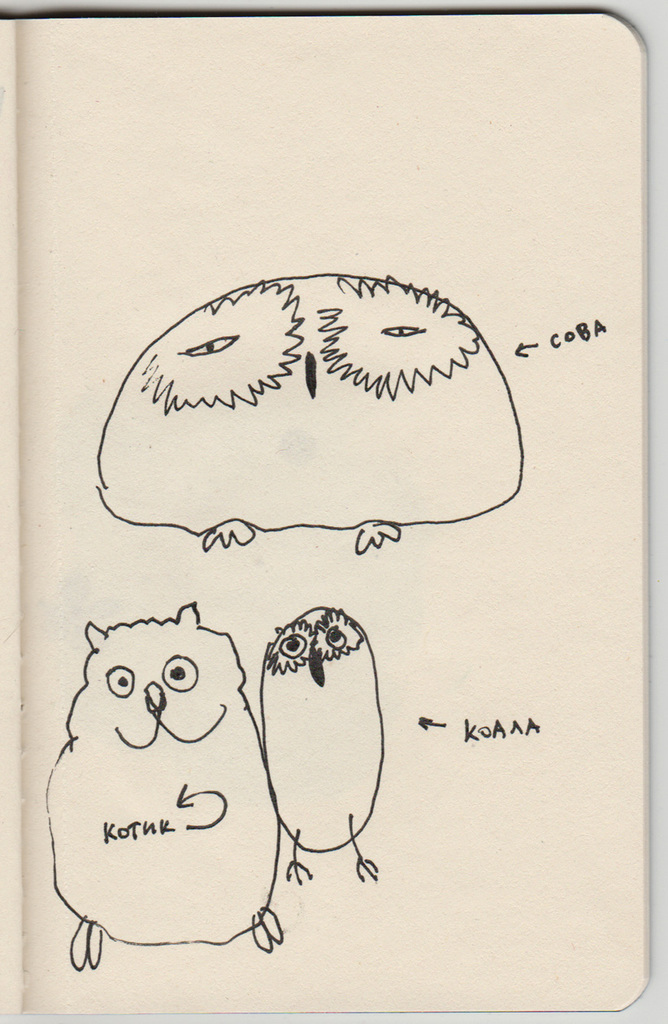 СОВА
КОАЛА
КОТИК